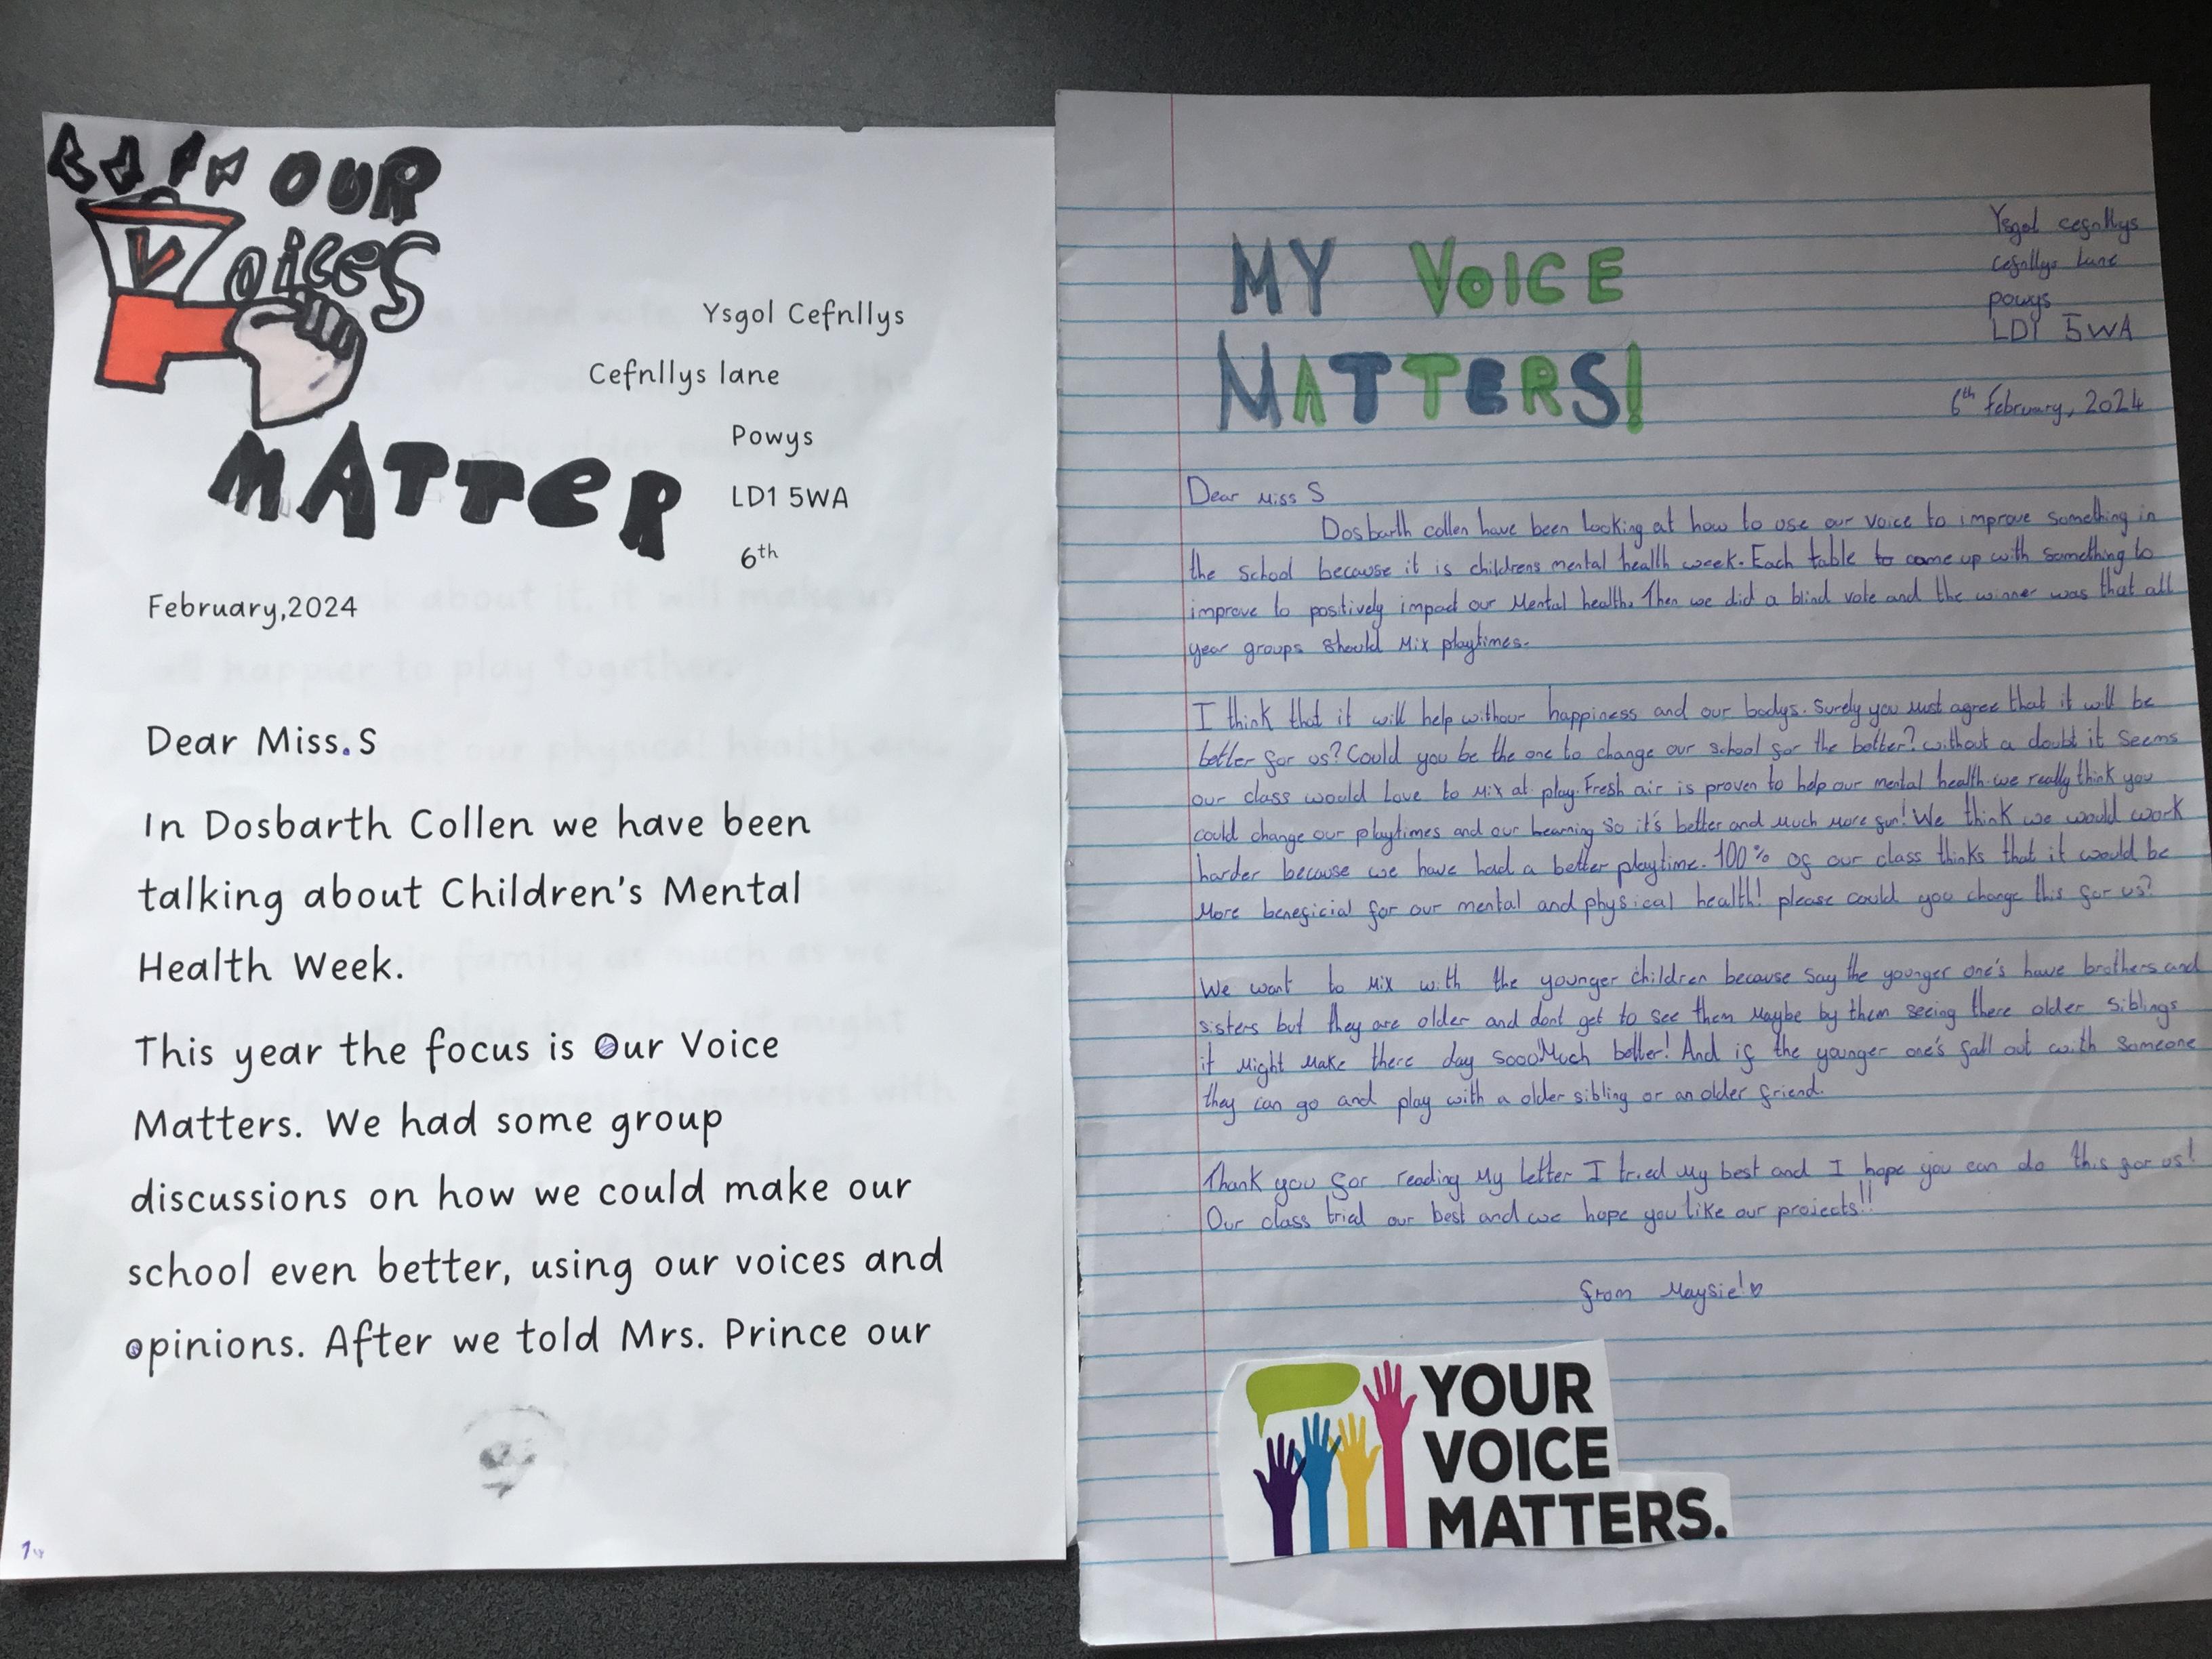 OUR
Voices
MATTER
Ysgol Cefnllys
Cefnllys lane
Powys
LD1 5WA
6th
February,2024
Dear Miss.S
In Dosbarth Collen we have been
talking about Children's Mental
Health Week.
This year the focus is Our Voice
Matters. We had some group
discussions on how we could make our
school even better, using our voices and
opinions. After we told Mrs. Prince our
1
MY VOICE
MATTERS!
Ysgol cefnllys
cefnllys lane
powys
LD1 5WA
6th February, 2024
Dear Miss S
Dosbarth collen have been looking at how to use our voice to improve something in
the school because it is childrens mental health week. Each table to came up with something to
improve to positively impact our Mental health. Then we did a blind vote and the winner was that all
year groups should Mix playtimes.
I think that it will help withour happiness and our bodys. Surely you must agree that it will be
better for us? Could you be the one to change our school for the better? without a doubt it seems
our class would Love to Mix at play. Fresh air is proven to help our mental health. we really think you
could change our playtimes and our learning so it's better and much more fun! We think we would work
harder because we have had a better playtime. 100% of our class thinks that it would be
More beneficial for our mental and physical health! please could you change this for us?
We want to Mix with the younger children because say the younger one's have brothers and
sisters but they are older and dont get to see them Maybe by them seeing there older siblings
it Might Make there day sooo Much better! And if the younger one's fall out with someone
they can go and play with a older sibling or an older friend.
Thank you for reading My letter I tried My best and I hope you can do this for us!
Our class tried our best and we hope you like our projects!!
from Maysie!
YOUR
VOICE
MATTERS.